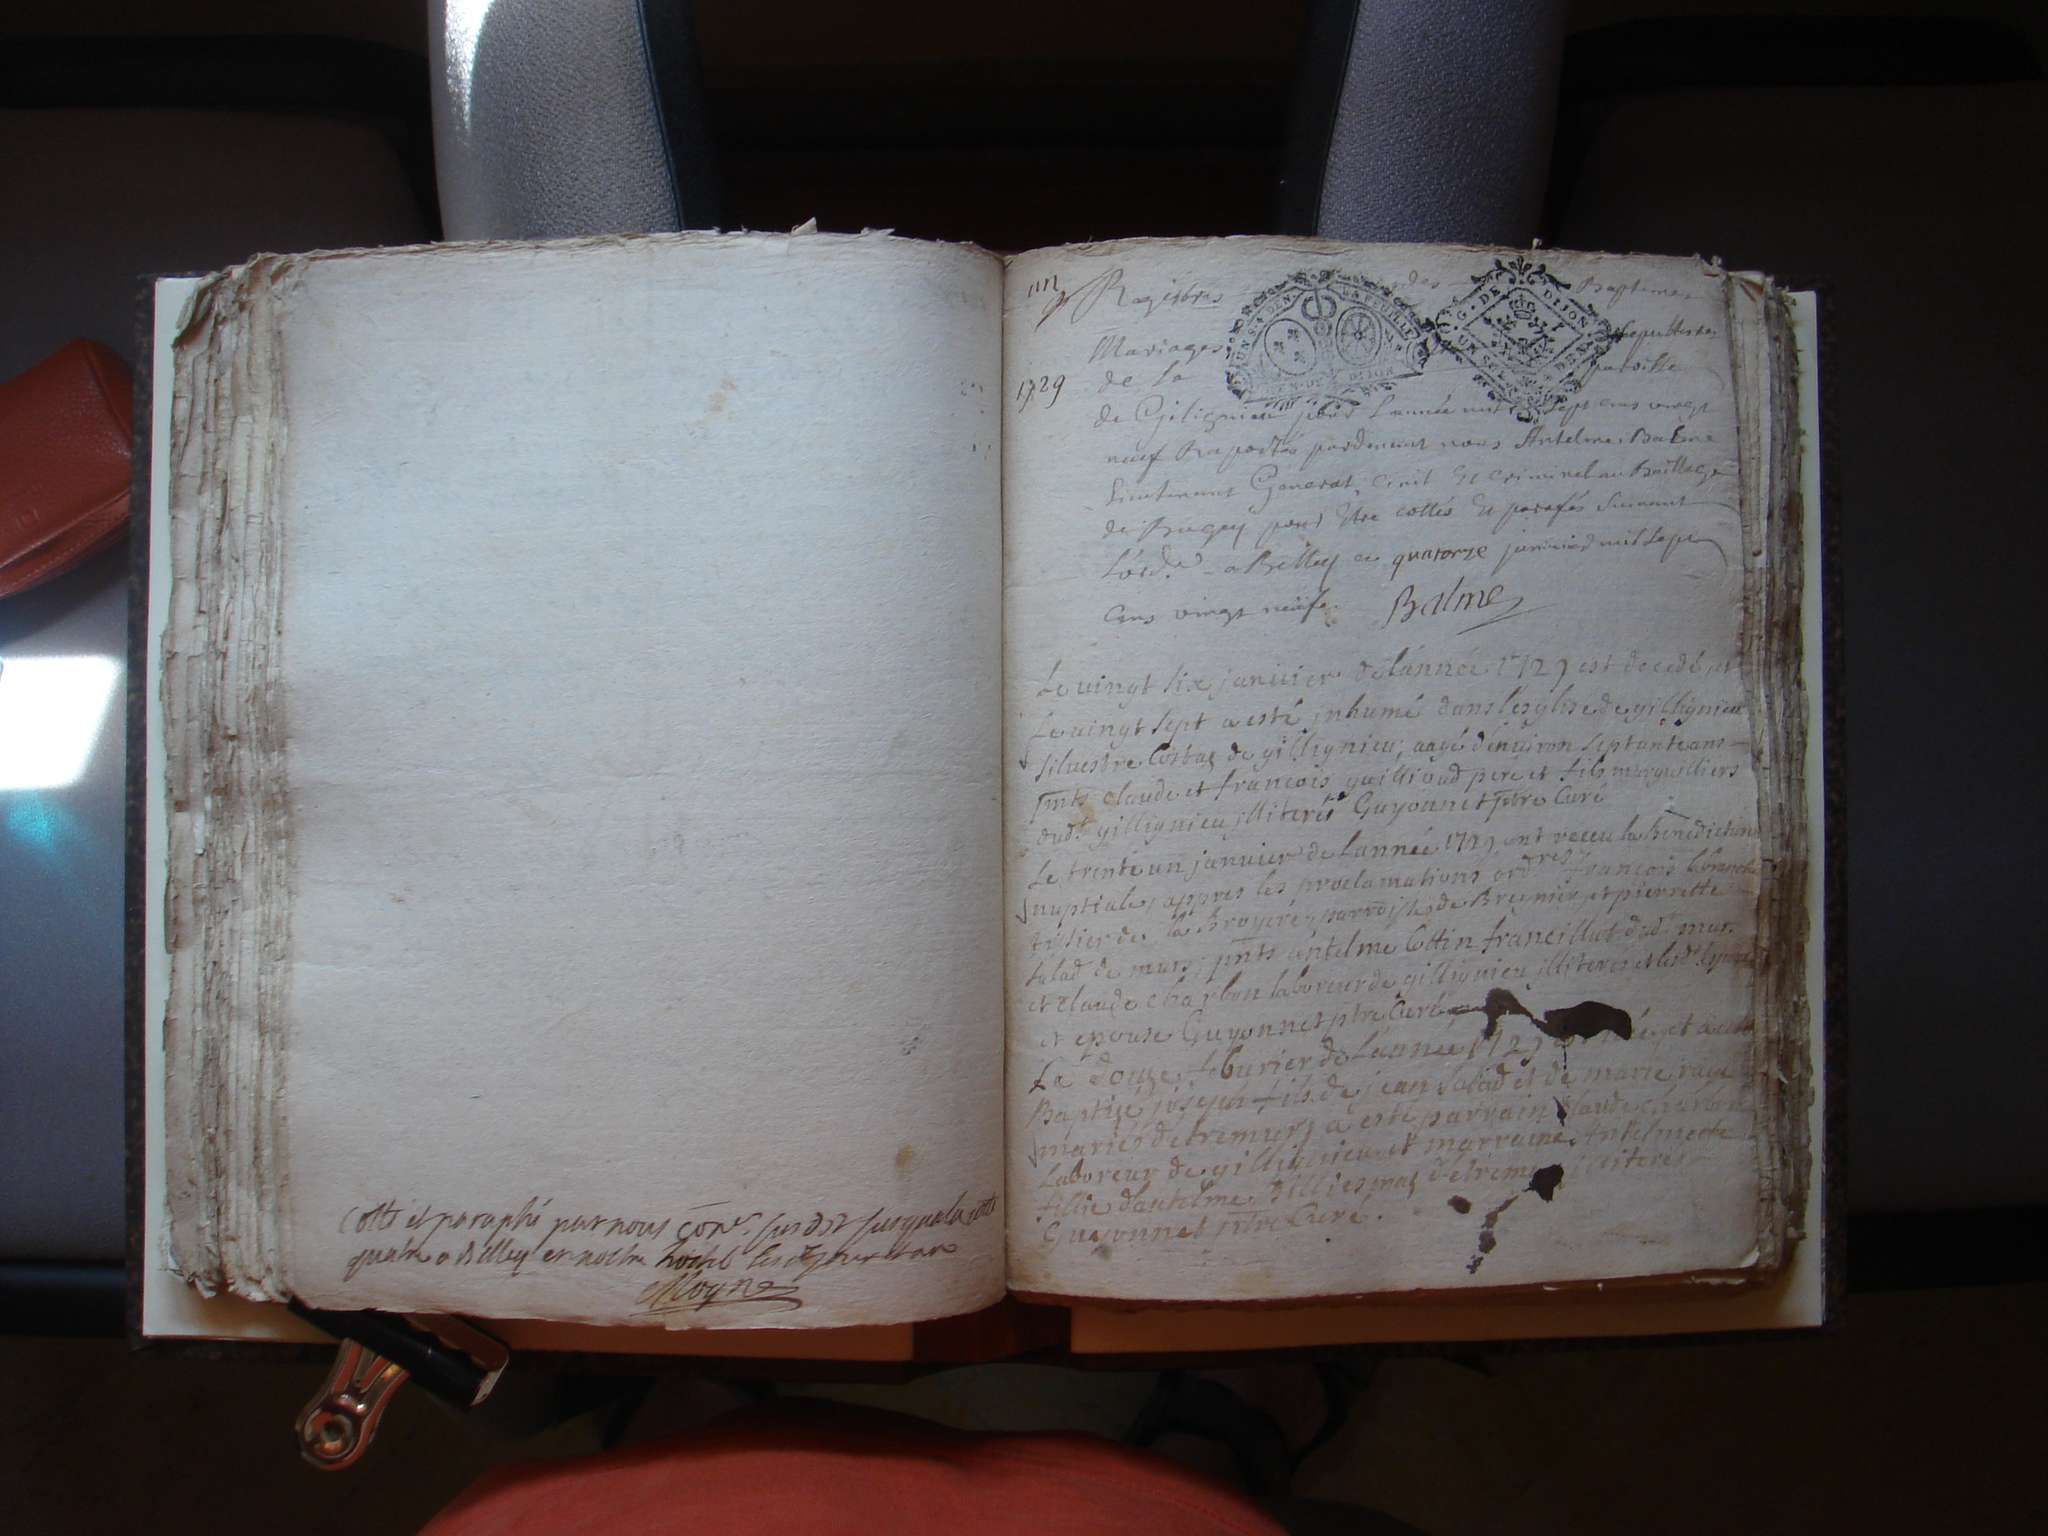 Cotté et paraphé par nous Con.er susdit jusqua la cotte
quatre a Belley en nostre hostel lesd jour et an
Moyne
1729
Registres des Baptemes
Mariages Sepultures
de La paroisse
de Gilignieu pour Lannée mil Sept cens vingt
neuf Raportés pardevant nous Antelme Balme
Lieutenant General, Civil Et Criminel au Bailliage
de Bugey pour Etre cottés Et parafés Suivant
L'ord.e a Belley ce quatorze janvier mil Sept
Cens vingt neuf. Balme
UN S. 4 DEN. LA FEUILLE
G. DE DIJON
Le vingt six janvier de Lannée 1729 est decedé, et
Le vingt sept a esté inhumé dans lesglise de gillignieu
silvestre Costaz de gillignieu, aagé d'environ septante ans
pnts claude et francois guillioud pere et fils marguilliers
dud.t gillignieu illiterés Guyonnet ptre Curé
Le trente un janvier de Lannée 1729 ont receu la Benediction
nuptiale, appres les proclamations ord.res francois
de la Broyere parroisse de Bregnier et pierrette
Salad de murs, pnts antelme Cottin francillat dud.t murs
et claude charbon laboreur de gillignieu illiteres et lesd.t
et epouse Guyonnet ptre Curé
Le douze feburier de Lannée 1729 est né, et a esté
Baptisé joseph fils de jean Salad et de marie
mariés detremurs a esté parrain claude charbon
Laboreur de gillignieu et marraine Antelmette
fillie dantelme illiterés
Guyonnet ptre Curé.